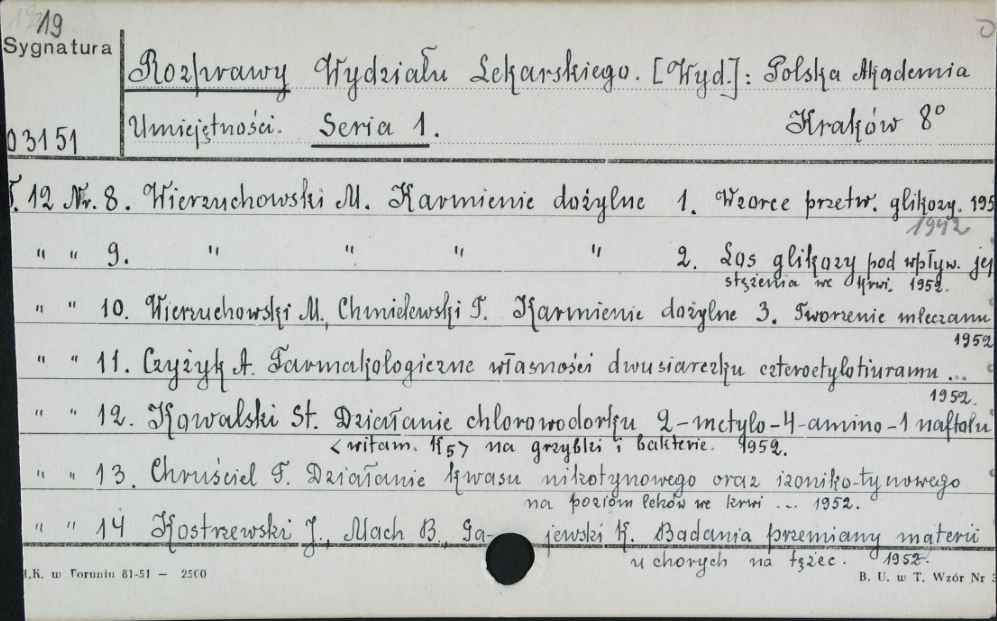 19
Sygnatura
Rozprawy Wydziału Lekarskiego. [Wyd.]: Polska Akademia
Umiejętności. Seria 1. Kraków 8°
03151
T. 12 Nr. 8. Wierzuchowski M. Karmienie dożylne 1. Wzorce przetw. glikozy. 195
1952
" " 9. " " " " 2. Los glikozy pod wpływ. jej
stężenia we krwi. 1952.
" " 10. Wierzuchowski M., Chmielewski T. Karmienie dożylne 3. Tworzenie mleczanu
1952
" " 11. Czyżyk A. Farmakologiczne własności dwusiarczku czteroetylotiuramu ...
1952.
" " 12. Kowalski St. Działanie chlorowodorku 2-metylo-4-amino-1 naftolu
<witam. K5> na grzybki i bakterie. 1952.
" " 13. Chruściel T. Działanie kwasu nikotynowego oraz izoniko-tynowego
na poziom leków we krwi ... 1952.
" " 14 Kostrzewski J., Mach B., Ga- jewski K. Badania przemiany materii
u chorych na tężec. 1952.
.K. w Toruniu 61-51 — 2500
B. U. w T. Wzór Nr 3